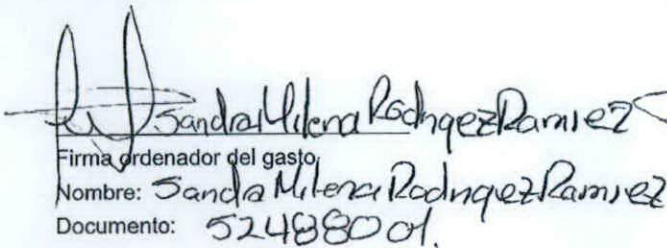 Sandra Milena RodriguezRamirez
Firma ordenador del gasto
Nombre: Sandra Milena RodriguezRamirez
Documento: 52488001.